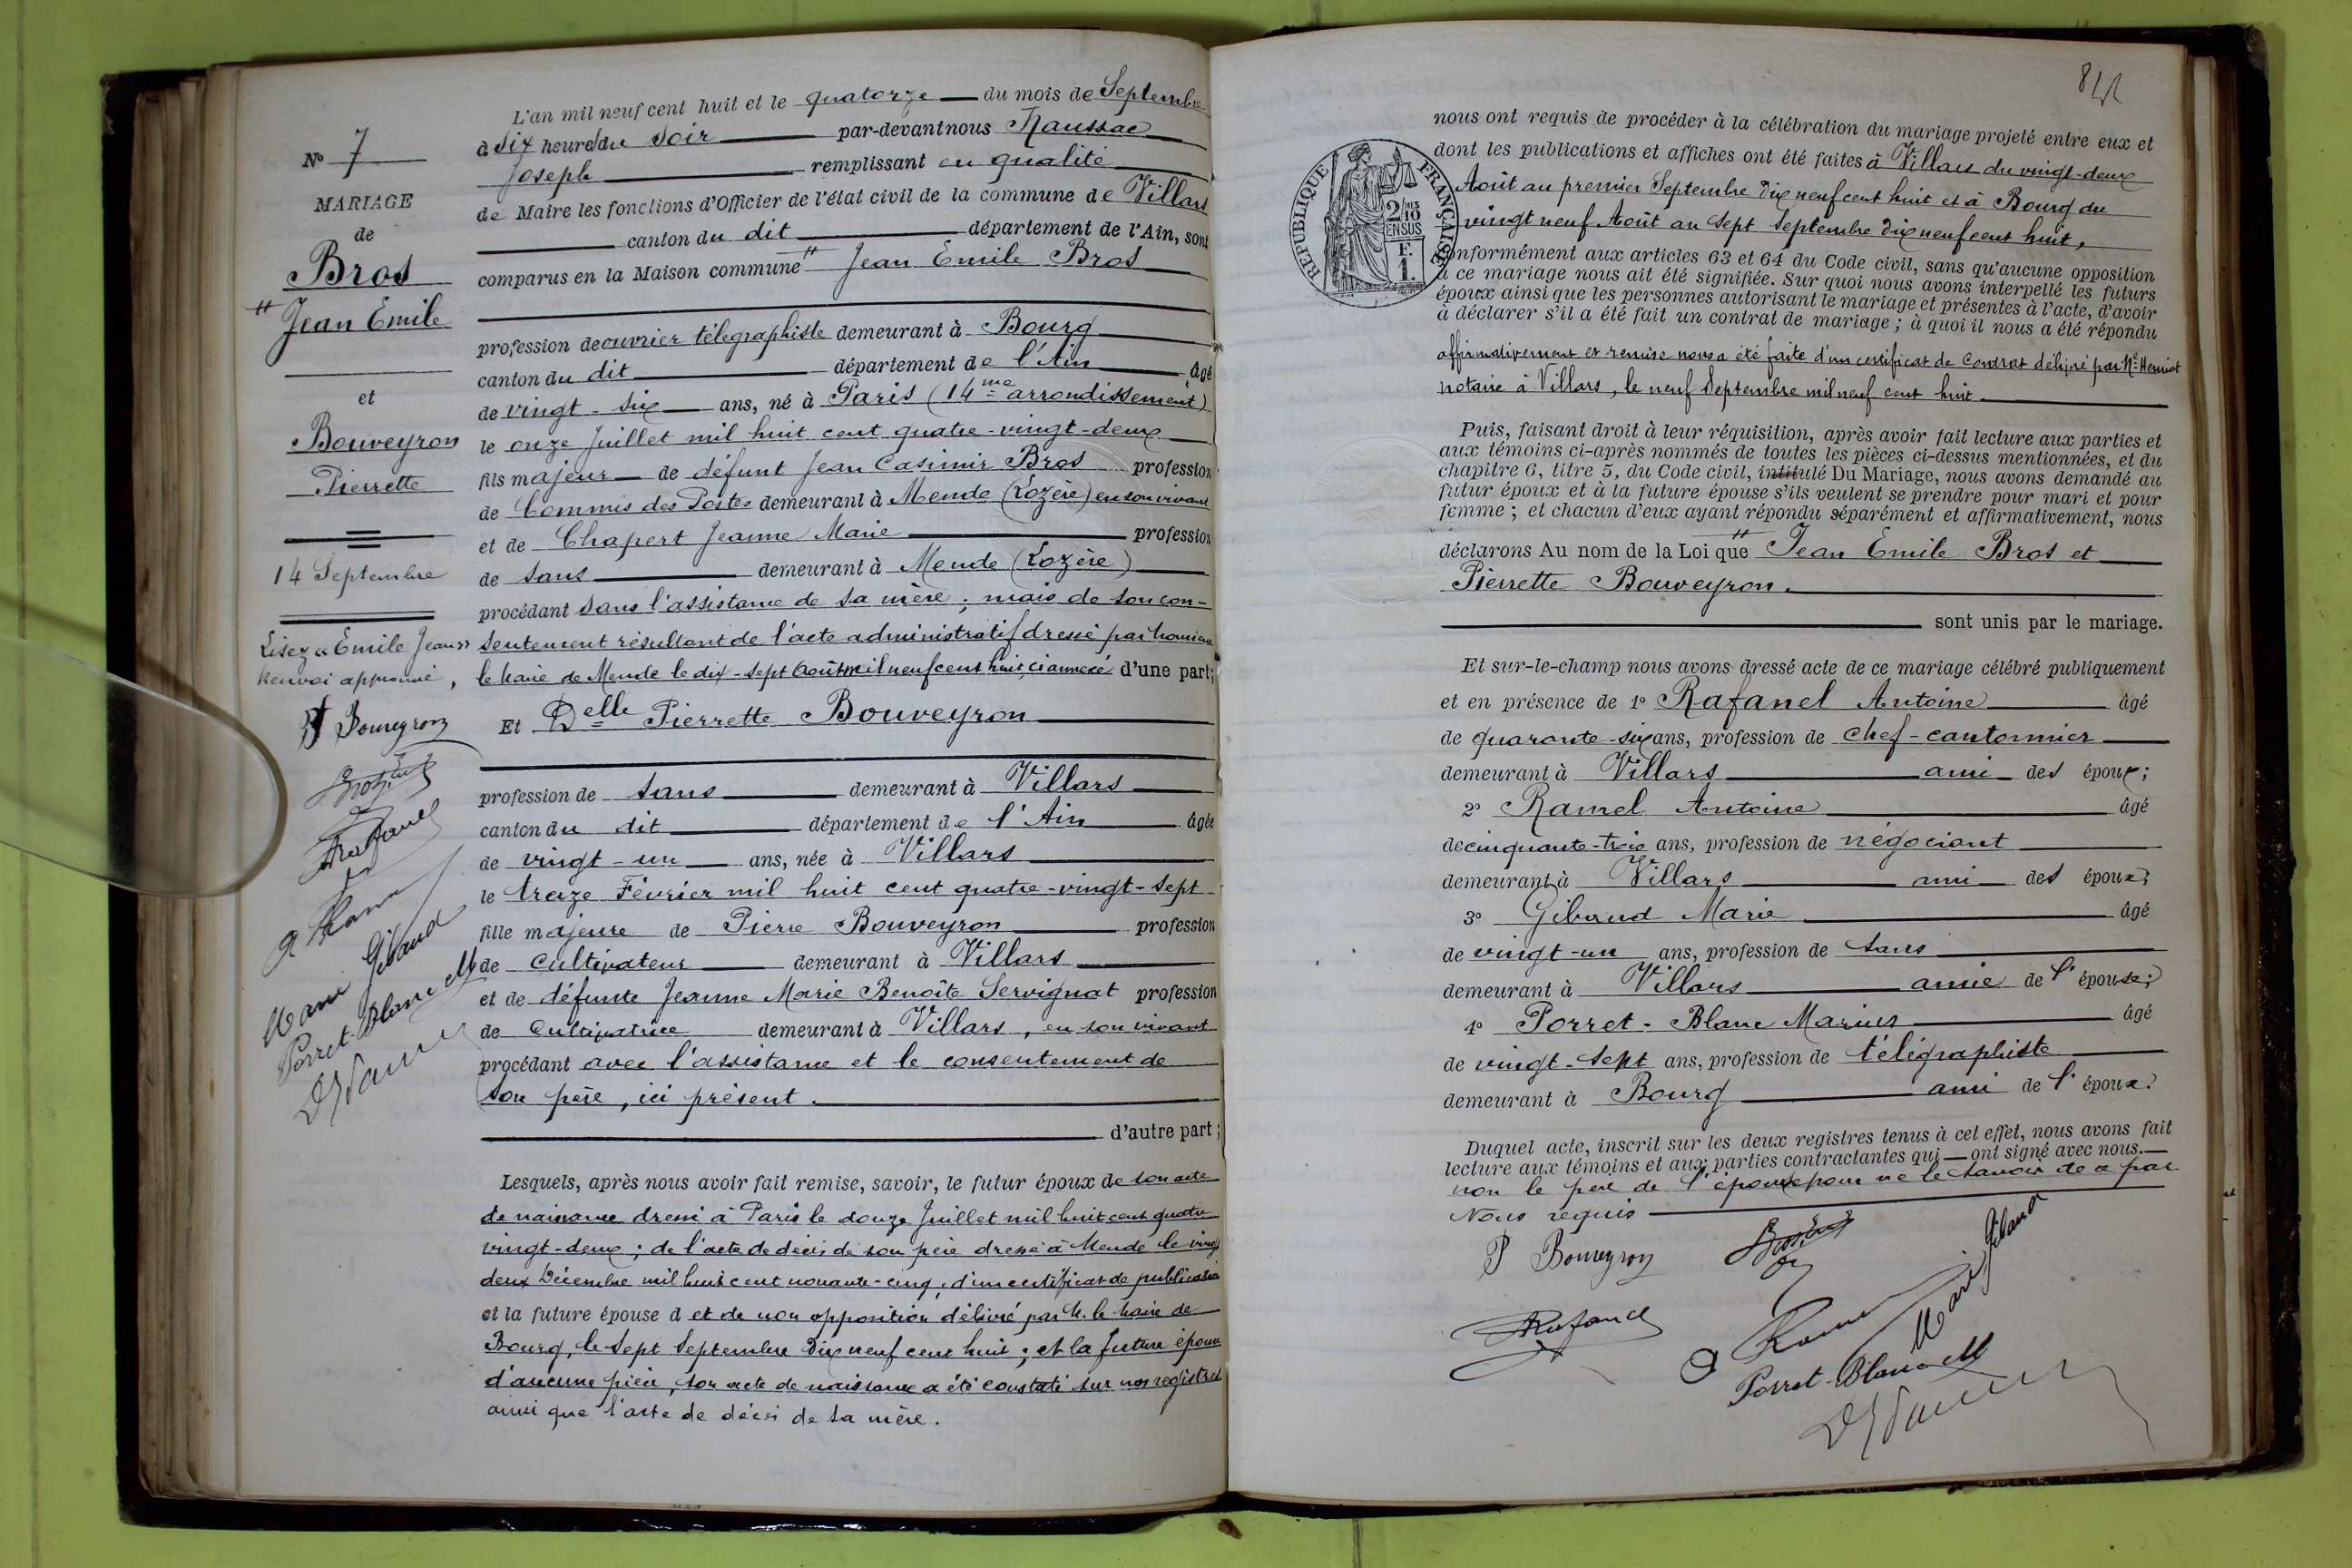 N° 7
MARIAGE
de
Bros
" Jean Emile
et
Bouveyron
Pierrette
14 Septembre
Lisez « Emile Jean »
Renvoi approuvé,
P Bouveyron
Rafanel
Marie Gibaud
Porret-Blanc M
L'an mil neuf cent huit et le quatorze du mois de Septembre
à six heures du soir par-devant nous Haussac
Joseph remplissant en qualité
de Maire les fonctions d'Officier de l'état civil de la commune de Villars
canton du dit département de l'Ain, sont
comparus en la Maison commune " Jean Emile Bros
profession de ouvrier télégraphiste demeurant à Bourg
canton du dit département de l'Ain âgé
de vingt-six ans, né à Paris (14me arrondissement)
le onze Juillet mil huit cent quatre-vingt-deux
fils majeur de défunt Jean Casimir Bros profession
de Commis des Postes demeurant à Mende (Lozère) en son vivant
et de Chapert Jeanne Marie profession
de sans demeurant à Mende (Lozère)
procédant sans l'assistance de sa mère ; mais de son con-
sentement résultant de l'acte administratif dressé par
le Maire de Mende le dix-sept Août mil neuf cent huit, ci annexé d'une part ;
Et Delle Pierrette Bouveyron
profession de sans demeurant à Villars
canton du dit département de l'Ain âgée
de vingt-un ans, née à Villars
le treize Février mil huit cent quatre-vingt-sept
fille majeure de Pierre Bouveyron profession
de cultivateur demeurant à Villars
et de défunte Jeanne Marie Benoîte Servignat profession
de cultivatrice demeurant à Villars, en son vivant
procédant avec l'assistance et le consentement de
son père, ici présent.
d'autre part ;
Lesquels, après nous avoir fait remise, savoir, le futur époux de son acte
de naissance dressé à Paris le douze Juillet mil huit cent quatre
vingt-deux ; de l'acte de décès de son père dressé à Mende le vingt
deux Décembre mil huit cent nonante-cinq, d'un certificat de publication
et la future épouse d et de non opposition délivré par M. le Maire de
Bourg, le sept Septembre dix neuf cent huit ; et la future épouse
d'aucune pièce, son acte de naissance a été constaté sur nos registres
ainsi que l'acte de décès de sa mère.
nous ont requis de procéder à la célébration du mariage projeté entre eux et
dont les publications et affiches ont été faites à Villars du vingt-deux
Août au premier Septembre dix neuf cent huit et à Bourg du
vingt neuf Août au sept Septembre dix neuf cent huit,
RÉPUBLIQUE FRANÇAISE
2/10MES
EN SUS
F.
1.
conformément aux articles 63 et 64 du Code civil, sans qu'aucune opposition
à ce mariage nous ait été signifiée. Sur quoi nous avons interpellé les futurs
époux ainsi que les personnes autorisant le mariage et présentes à l'acte, d'avoir
à déclarer s'il a été fait un contrat de mariage ; à quoi il nous a été répondu
affirmativement et remise nous a été faite d'un certificat de Contrat délivré par Me Henriot
notaire à Villars, le neuf Septembre mil neuf cent huit
Puis, faisant droit à leur réquisition, après avoir fait lecture aux parties et
aux témoins ci-après nommés de toutes les pièces ci-dessus mentionnées, et du
chapitre 6, titre 5, du Code civil, intitulé Du Mariage, nous avons demandé au
futur époux et à la future épouse s'ils veulent se prendre pour mari et pour
femme ; et chacun d'eux ayant répondu séparément et affirmativement, nous
déclarons Au nom de la Loi que " Jean Emile Bros et
Pierrette Bouveyron.
sont unis par le mariage.
Et sur-le-champ nous avons dressé acte de ce mariage célébré publiquement
et en présence de 1° Rafanel Antoine âgé
de quarante-six ans, profession de chef-cantonnier
demeurant à Villars ami des époux ;
2° Ramel Antoine âgé
de cinquante-trois ans, profession de négociant
demeurant à Villars ami des époux ;
3° Gibaud Marie âgé
de vingt-un ans, profession de sans
demeurant à Villars amie de l'épouse ;
4° Porret-Blanc Marius âgé
de vingt-sept ans, profession de télégraphiste
demeurant à Bourg ami de l'époux.
Duquel acte, inscrit sur les deux registres tenus à cet effet, nous avons fait
lecture aux témoins et aux parties contractantes qui ont signé avec nous.
non le père de l'épouse pour ne le savoir de a par
Nous requis
P Bouveyron
Rafanel
Marie Gibaud
Porret-Blanc M